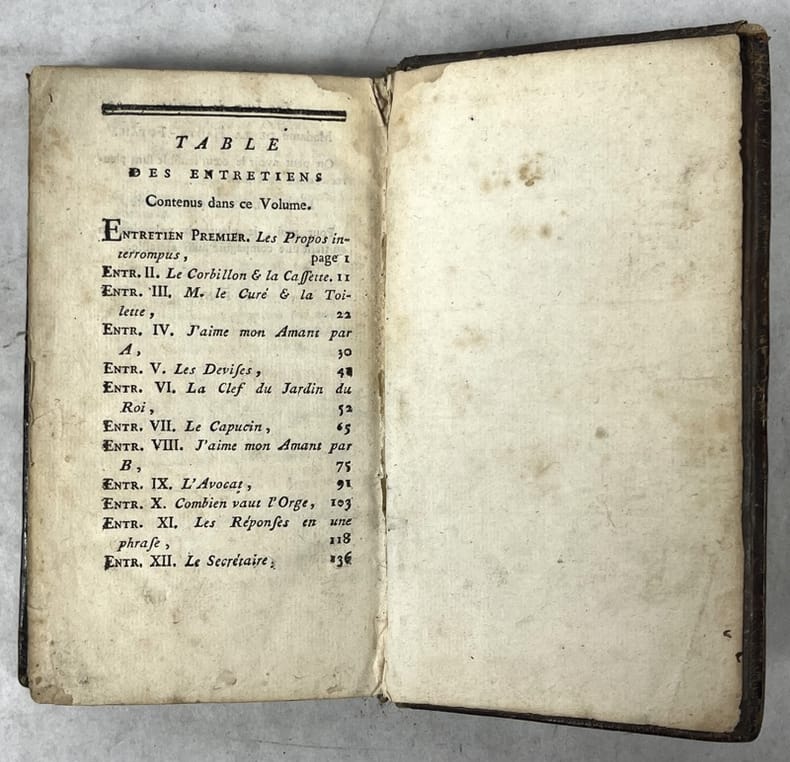 TABLE
DES ENTRETIENS
Contenus dans ce Volume.
ENTRETIEN PREMIER. Les Propos in-
terrompus, page 1
ENTR. II. Le Corbillon & la Caſſette. 11
ENTR. III. M. le Curé & la Toi-
lette, 22
ENTR. IV. J'aime mon Amant par
A, 30
ENTR. V. Les Deviſes, 41
ENTR. VI. La Clef du Jardin du
Roi, 52
ENTR. VII. Le Capucin, 65
ENTR. VIII. J'aime mon Amant par
B, 75
ENTR. IX. L'Avocat, 91
ENTR. X. Combien vaut l'Orge, 103
ENTR. XI. Les Réponſes en une
phraſe, 118
ENTR. XII. Le Secrétaire, 136